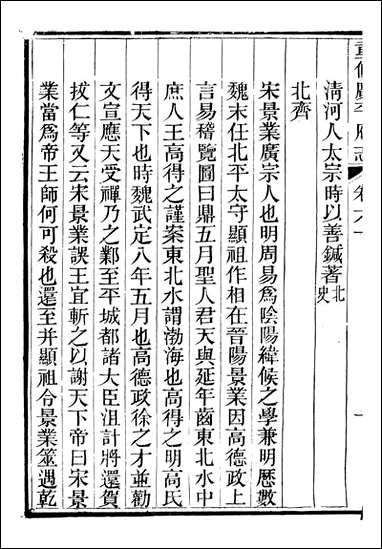 重修廣平府志
卷六十
一
清河人太宗時以善鍼著北史
北齊
宋景業廣宗人也明周易爲陰陽緯候之學兼明歷數
魏末任北平太守顯祖作相在晉陽景業因高德政上
言易稽覽圖曰鼎五月聖人君天與延年齒東北水中
庶人王高得之謹案東北水謂渤海也高得之明高氏
得天下也時魏武定八年五月也高德政徐之才並勸
文宣應天受禪乃之鄴至平城都諸大臣沮計將還賀
拔仁等又云宋景業誤王宜斬之以謝天下帝曰宋景
業當爲帝王師何可殺也還至并顯祖令景業筮遇乾